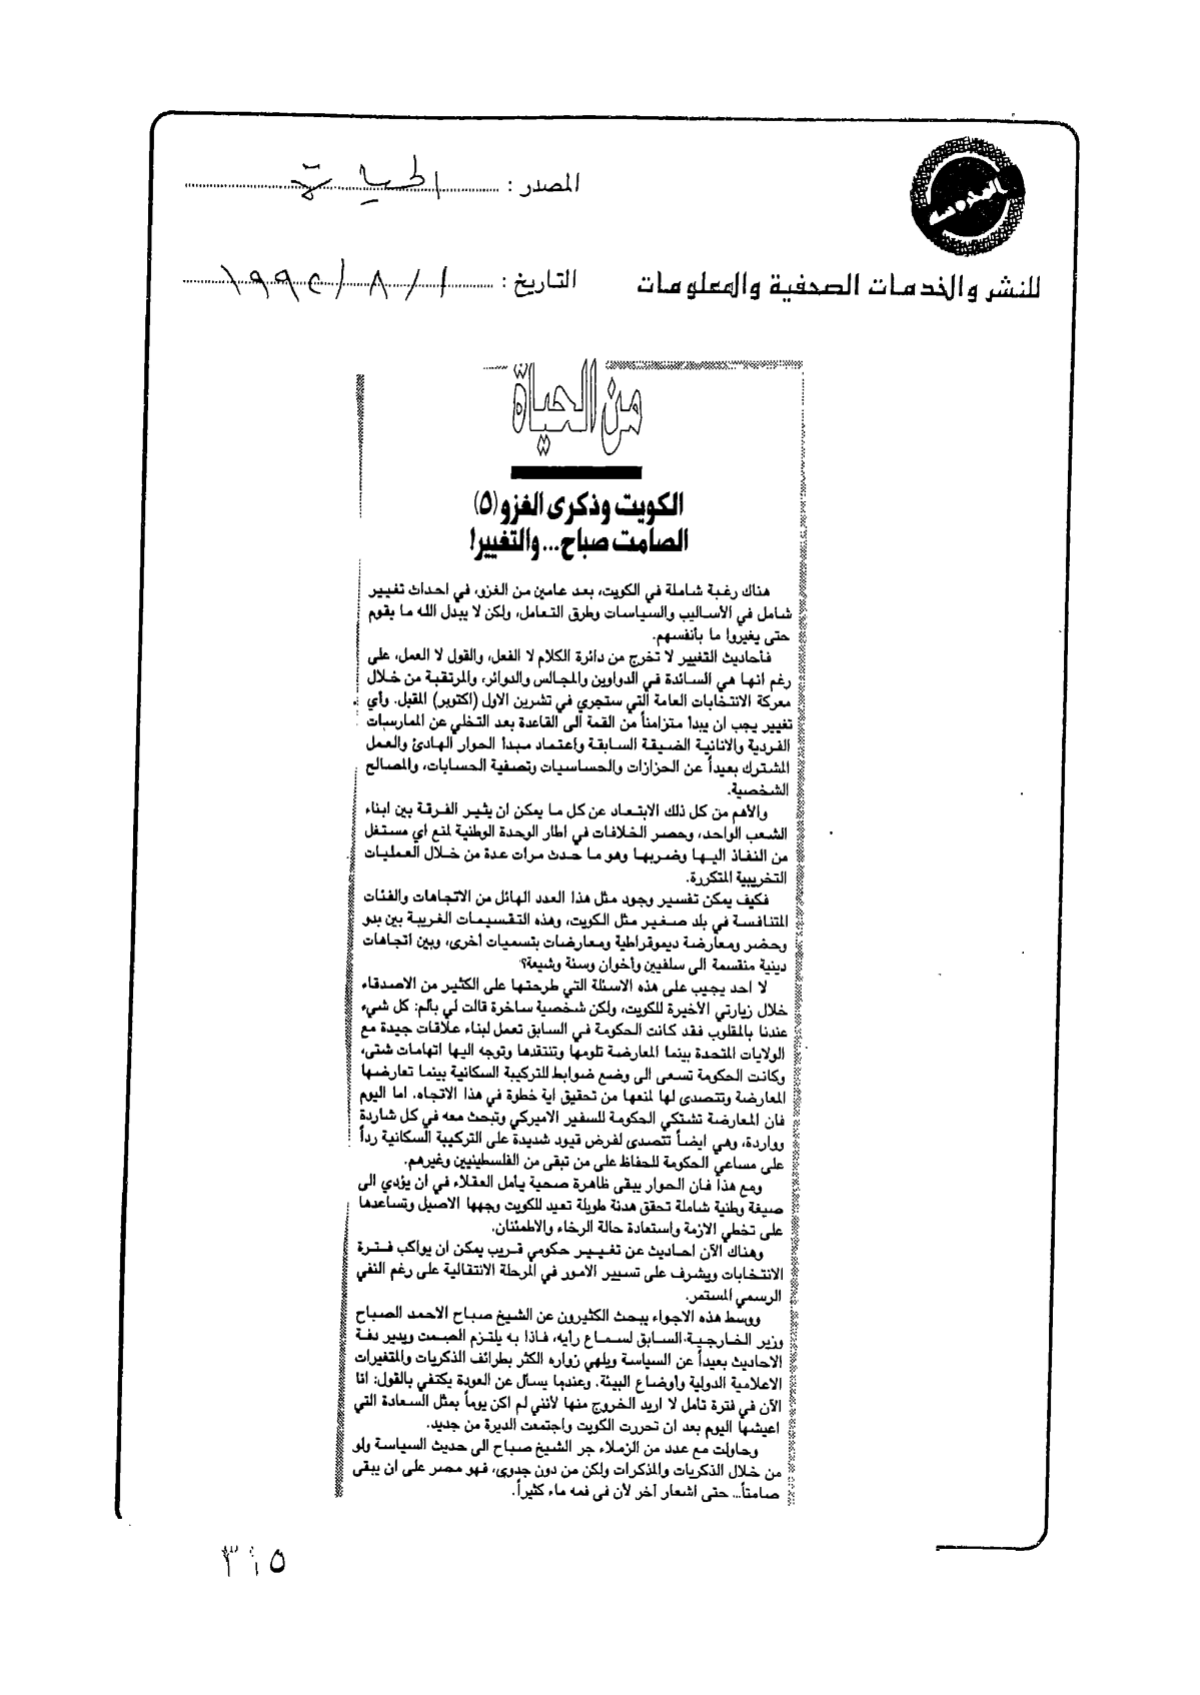 المصدر : الحياة
للنشر والخدمات الصحفية والمعلومات
التاريخ : ١ / ٨ / ١٩٩٢
من الحياة
الكويت وذكرى الغزو (٥)
الصامت صباح... والتغيير!
هناك رغبة شاملة في الكويت، بعد عامين من الغزو، في احداث تغيير
شامل في الأساليب والسياسات وطرق التعامل، ولكن لا يبدل الله ما بقوم
حتى يغيروا ما بأنفسهم.
فأحاديث التغيير لا تخرج من دائرة الكلام لا الفعل، والقول لا العمل، على
رغم انها هي السائدة في الدواوين والمجالس والدوائر، والمرتقبة من خلال
معركة الانتخابات العامة التي ستجري في تشرين الاول (اكتوبر) المقبل. وأي
تغيير يجب ان يبدأ متزامناً من القمة الى القاعدة بعد التخلي عن الممارسات
الفردية والانانية الضيقة السابقة واعتماد مبدأ الحوار الهادئ والعمل
المشترك بعيداً عن الحزازات والحساسيات وتصفية الحسابات، والمصالح
الشخصية.
والأهم من كل ذلك الابتعاد عن كل ما يمكن ان يثير الفرقة بين ابناء
الشعب الواحد، وحصر الخلافات في اطار الوحدة الوطنية لمنع اي مستغل
من النفاذ اليها وضربها وهو ما حدث مرات عدة من خلال العمليات
التخريبية المتكررة.
فكيف يمكن تفسير وجود مثل هذا العدد الهائل من الاتجاهات والفئات
المتنافسة في بلد صغير مثل الكويت، وهذه التقسيمات الغريبة بين بدو
وحضر ومعارضة ديموقراطية ومعارضات بتسميات أخرى، وبين اتجاهات
دينية منقسمة الى سلفيين وأخوان وسنة وشيعة؟
لا احد يجيب على هذه الاسئلة التي طرحتها على الكثير من الاصدقاء
خلال زيارتي الأخيرة للكويت، ولكن شخصية ساخرة قالت لي بألم: كل شيء
عندنا بالمقلوب فقد كانت الحكومة في السابق تعمل لبناء علاقات جيدة مع
الولايات المتحدة بينما المعارضة تلومها وتنتقدها وتوجه اليها اتهامات شتى،
وكانت الحكومة تسعى الى وضع ضوابط للتركيبة السكانية بينما تعارضها
المعارضة وتتصدى لها لمنعها من تحقيق اية خطوة في هذا الاتجاه. اما اليوم
فان المعارضة تشتكي الحكومة للسفير الاميركي وتبحث معه في كل شاردة
وواردة، وهي ايضاً تتصدى لفرض قيود شديدة على التركيبة السكانية رداً
على مساعي الحكومة للحفاظ على من تبقى من الفلسطينيين وغيرهم.
ومع هذا فان الحوار يبقى ظاهرة صحية يأمل العقلاء في ان يؤدي الى
صيغة وطنية شاملة تحقق هدنة طويلة تعيد للكويت وجهها الاصيل وتساعدها
على تخطي الازمة واستعادة حالة الرخاء والاطمئنان.
وهناك الآن احاديث عن تغيير حكومي قريب يمكن ان يواكب فترة
الانتخابات ويشرف على تسيير الامور في المرحلة الانتقالية على رغم النفي
الرسمي المستمر.
ووسط هذه الاجواء يبحث الكثيرون عن الشيخ صباح الاحمد الصباح
وزير الخارجية السابق لسماع رأيه، فاذا به يلتزم الصمت ويدير دفة
الاحاديث بعيداً عن السياسة ويلهي زواره الكثر بطرائف الذكريات والمتغيرات
الاعلامية الدولية وأوضاع البيئة. وعندما يسأل عن العودة يكتفي بالقول: انا
الآن في فترة تأمل لا اريد الخروج منها لأنني لم اكن يوماً بمثل السعادة التي
اعيشها اليوم بعد ان تحررت الكويت واجتمعت الديرة من جديد.
وحاولت مع عدد من الزملاء جر الشيخ صباح الى حديث السياسة ولو
من خلال الذكريات والمذكرات ولكن من دون جدوى، فهو مصر على ان يبقى
صامتاً... حتى اشعار آخر لأن في فمه ماء كثيراً.